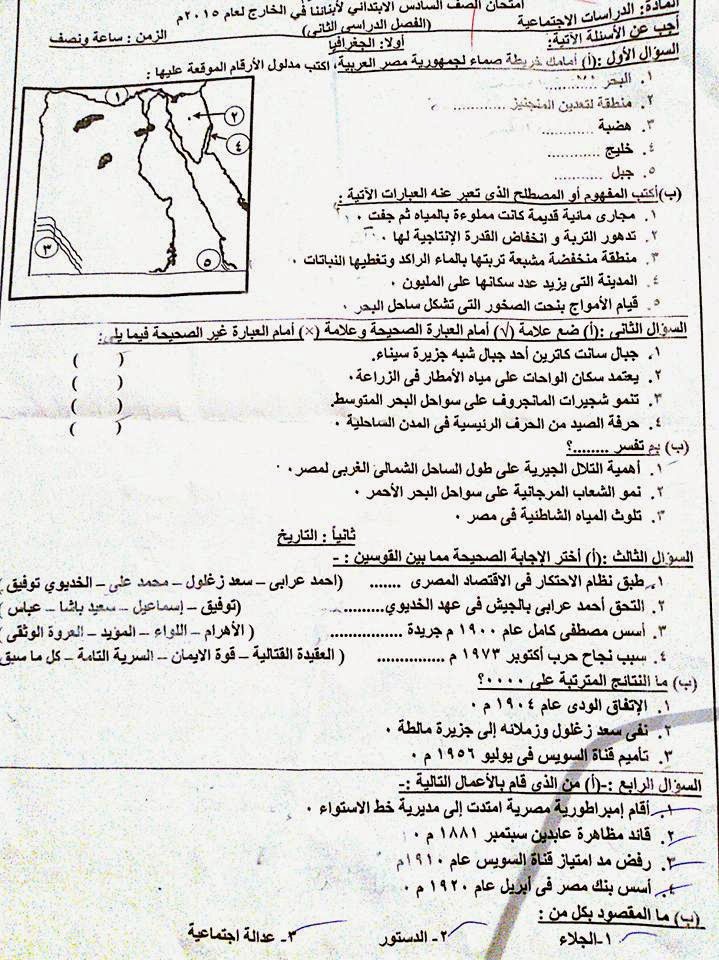 امتحان الصف السادس الابتدائي لأبنائنا في الخارج لعام ٢٠١٥م
المادة: الدراسات الاجتماعية (الفصل الدراسى الثانى) الزمن : ساعة ونصف
أجب عن الأسئلة الآتية: أولا: الجغرافيا
السؤال الأول :(أ) أمامك خريطة صماء لجمهورية مصر العربية، اكتب مدلول الأرقام الموقعة عليها :
١. البحر ...........
٢. منطقة لتعدين المنجنيز ...........
٣. هضبة ...........
٤. خليج ...........
٥. جبل ...........
١
٢
٤
٣
٥
(ب)أكتب المفهوم أو المصطلح الذى تعبر عنه العبارات الآتية :
١. مجارى مائية قديمة كانت مملوءة بالمياه ثم جفت ٠
٢. تدهور التربة و انخفاض القدرة الإنتاجية لها ٠
٣. منطقة منخفضة مشبعة تربتها بالماء الراكد وتغطيها النباتات ٠
٤. المدينة التى يزيد عدد سكانها على المليون ٠
٥. قيام الأمواج بنحت الصخور التى تشكل ساحل البحر ٠
السؤال الثانى :(أ) ضع علامة (√) أمام العبارة الصحيحة وعلامة (×) أمام العبارة غير الصحيحة فيما يلى:
١. جبال سانت كاترين أحد جبال شبه جزيرة سيناء. ( )
٢. يعتمد سكان الواحات على مياه الأمطار فى الزراعة٠ ( )
٣. تنمو شجيرات المانجروف على سواحل البحر المتوسط. ( )
٤. حرفة الصيد من الحرف الرئيسية فى المدن الساحلية ٠ ( )
(ب) بم تفسر ........؟
١. أهمية التلال الجيرية على طول الساحل الشمالى الغربى لمصر٠
٢. نمو الشعاب المرجانية على سواحل البحر الأحمر ٠
٣. تلوث المياه الشاطئية فى مصر ٠
ثانياً : التاريخ
السؤال الثالث :(أ) أختر الإجابة الصحيحة مما بين القوسين : -
١. طبق نظام الاحتكار فى الاقتصاد المصرى ....... (احمد عرابى – سعد زغلول – محمد على – الخديوي توفيق )
٢. التحق أحمد عرابى بالجيش فى عهد الخديوي.......... (توفيق – إسماعيل – سعيد باشا – عباس )
٣. أسس مصطفى كامل عام ١٩٠٠ م جريدة ................. ( الأهرام – اللواء – المؤيد – العروة الوثقى )
٤. سبب نجاح حرب أكتوبر ١٩٧٣ م ............... ( العقيدة القتالية – قوة الايمان – السرية التامة – كل ما سبق
(ب) ما النتائج المترتبة على ٠٠٠٠؟
١. الإتفاق الودى عام ١٩٠٤ م ٠
٢. نفى سعد زغلول وزملائه إلى جزيرة مالطة ٠
٣. تأميم قناة السويس فى يوليو ١٩٥٦ م ٠
السؤال الرابع :-(أ) من الذى قام بالأعمال التالية :-
١. أقام إمبراطورية مصرية امتدت إلى مديرية خط الاستواء ٠
٢. قائد مظاهرة عابدين سبتمبر ١٨٨١ م ٠
٣. رفض مد امتياز قناة السويس عام ١٩١٠م
٤. أسس بنك مصر فى أبريل عام ١٩٢٠ م ٠
(ب) ما المقصود بكل من :
١-الجلاء ٢- الدستور ٣- عدالة اجتماعية